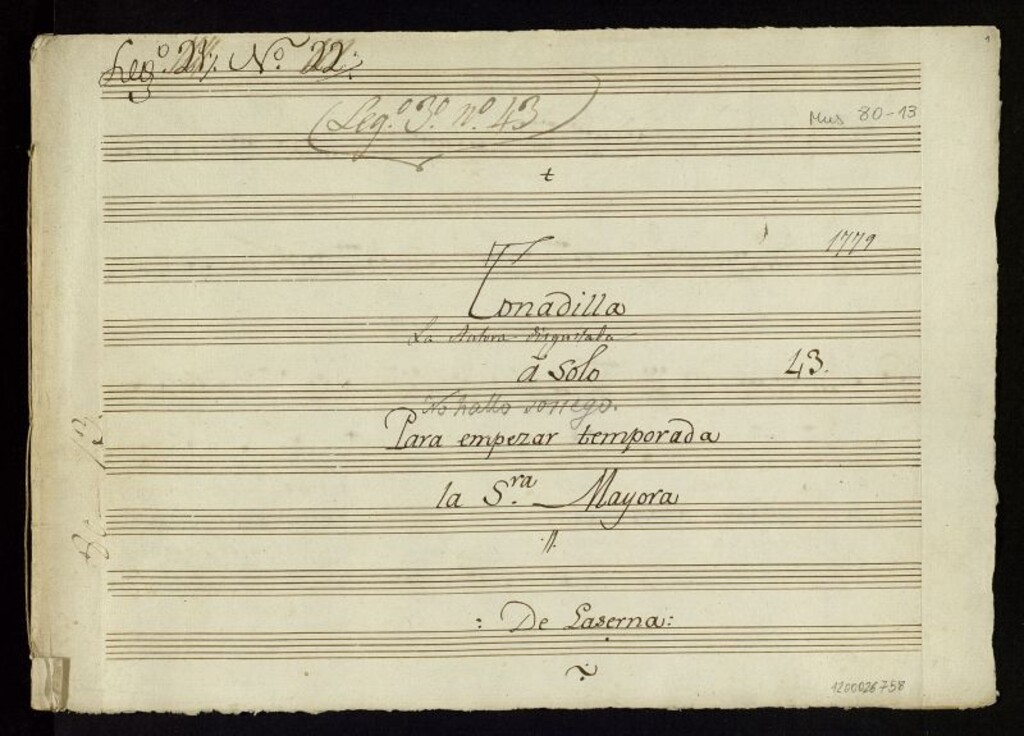 Leg.º 21. N.º 22.
(Leg.º 3.º n.º 43)
Mus 80-13
t
1779
Tonadilla
La Autora disgustada
â solo
43.
No hallo sosiego.
Para empezar temporada
la S.ra Mayora
80 13
: De Laserna:
1200026758